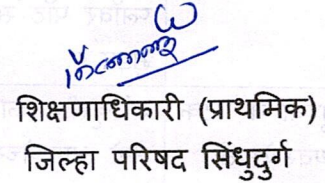 शिक्षणाधिकारी (प्राथमिक)
जिल्हा परिषद सिंधुदुर्ग